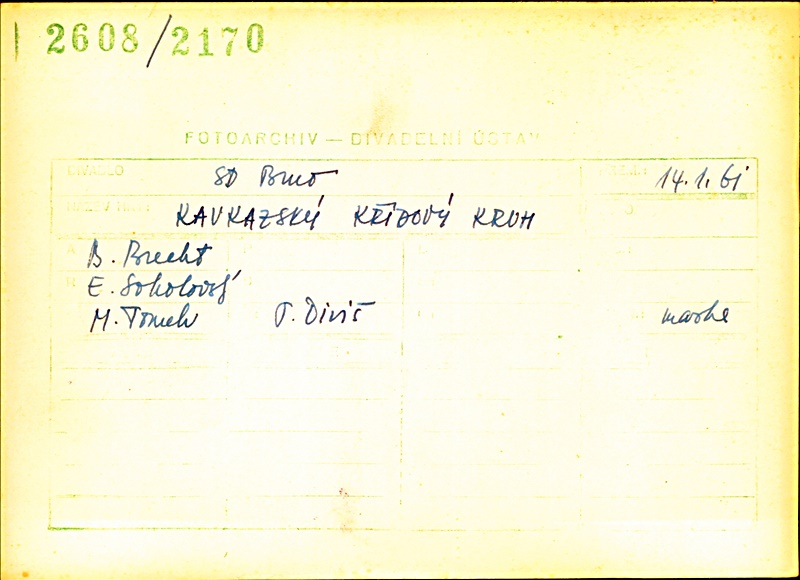 2608/2170
FOTOARCHIV — DIVADELNÍ ÚSTAV
DIVADLO SD Brno 14.1.61
KAVKAZSKÝ KŘÍDOVÝ KRUH
B. Brecht
E. Sokolovský
M. Tomek P. Diviš maske